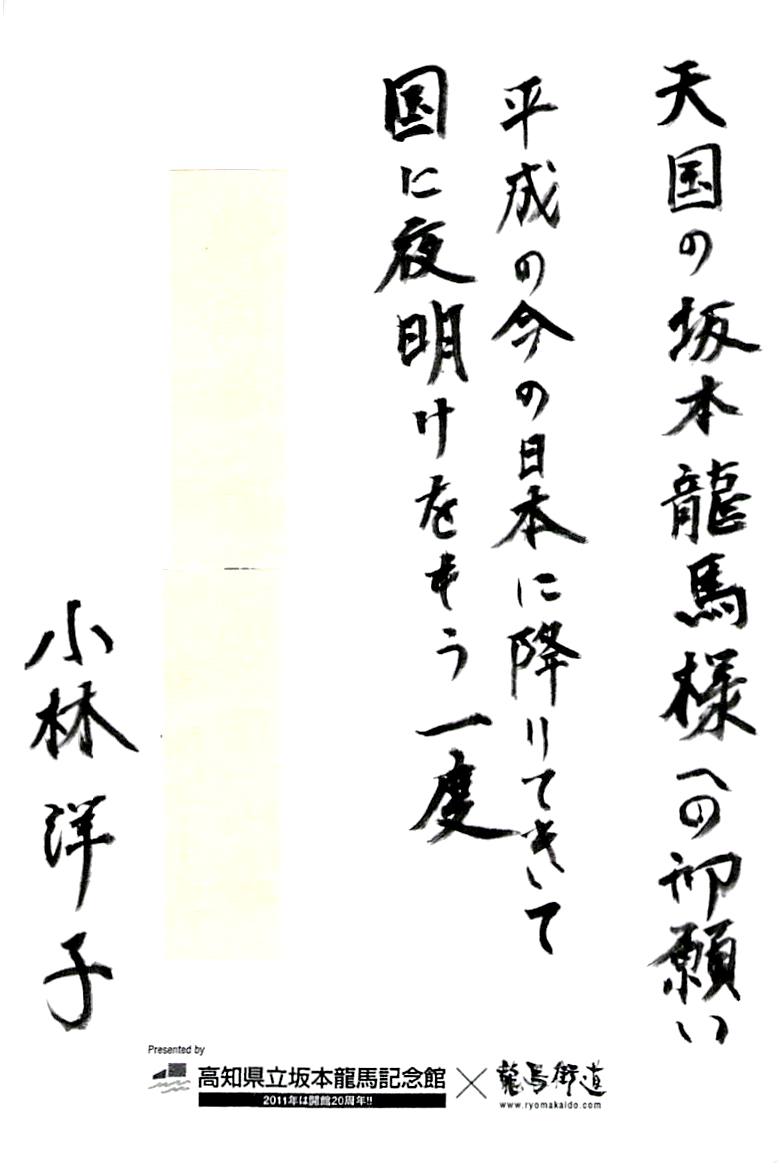 天国の坂本龍馬様への御願い
平成の今の日本に降りてきいて
国に夜明けをもう一度
小林洋子
Presented by
高知県立坂本龍馬記念館
2011年は開館20周年!!
×
龍馬街道
www.ryomakaido.com